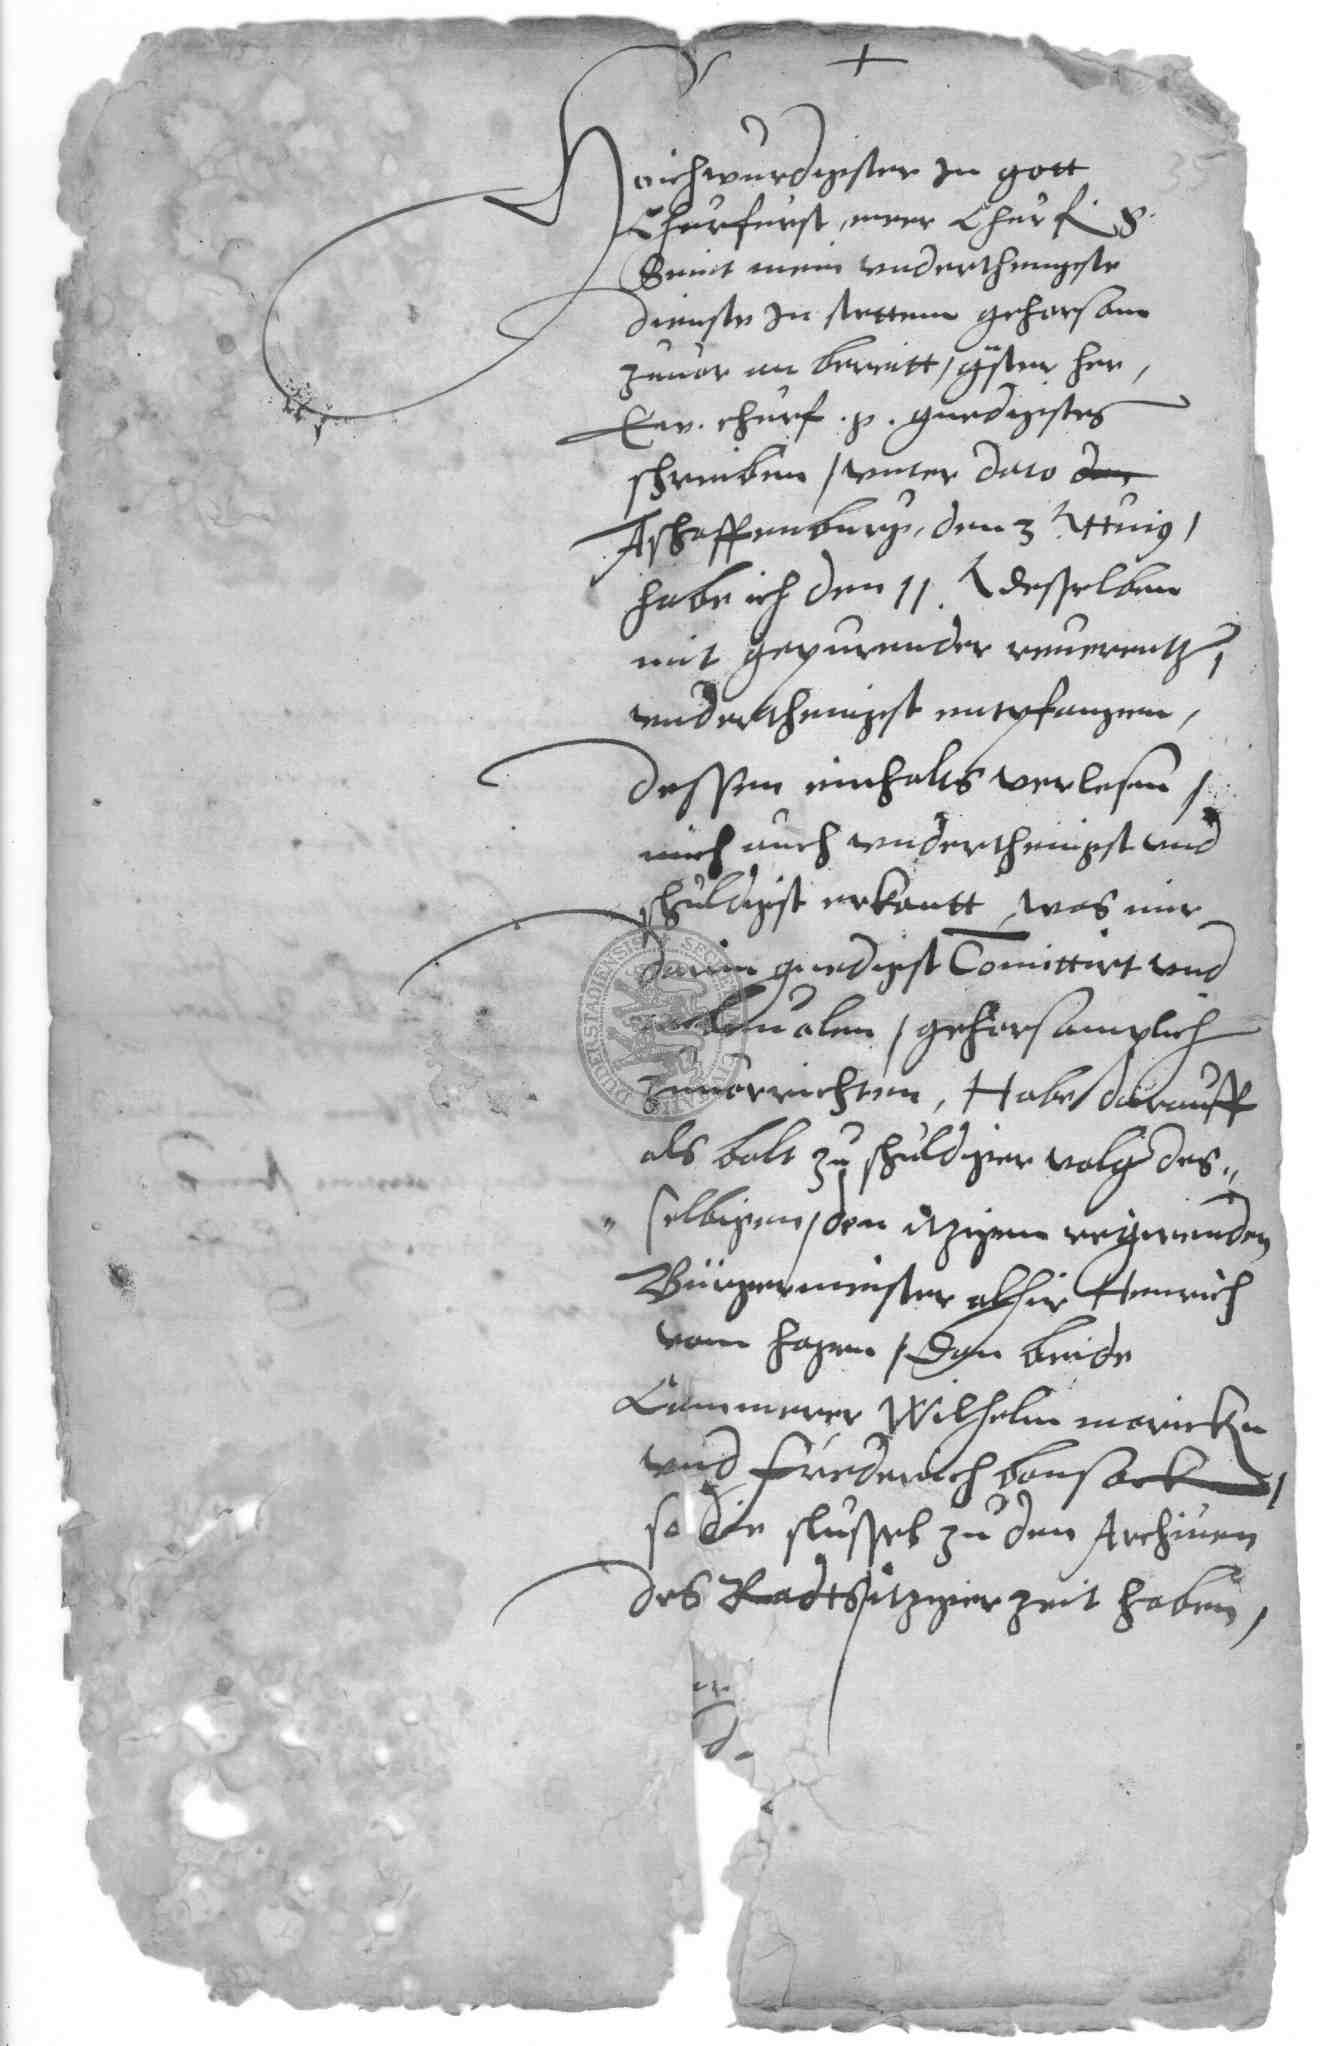 +
35
Hoichwurdigster In gott
Churfurst, ewer Churf. g.
Seint mein vnderthenigste
dienste In stettem gehorsam
zuuor an bereitt, gster her,
Ew. churf. g. gnedigistes
schreiben, vnter dato
Aschaffenburg, den 3
habe ich den 11. desselben
mit gepurender reuerentz,
vnderthenigst entpfangen,
dessen einhalts verlesen,
mich auch vnderthenigst vnd
schuldigst erkantt was mir
darin gnedigst Comittirt vnd
beuolen, gehorsamplich
zuuorrichten, Habe darauff
als balt zu schuldiger volg des„
„selbigen, den itzigenn regirenden
Bürgermeister alhir Henrich
vom hagen, Den beide
Cammerer Wilhelm
vnd friederich bonsack,
so die slussel zu den Archiuen
des Radts itziger zeit haben,
DUDERSTADIENSIS